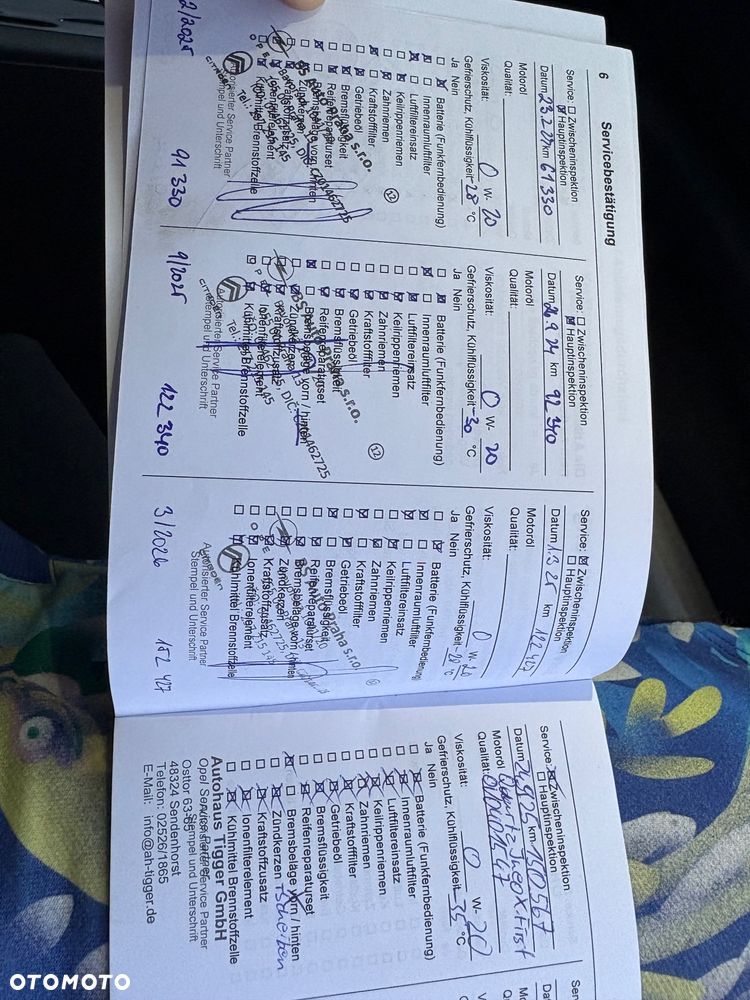 6
Servicebestätigung
Service: ☐ Zwischeninspektion
☒ Hauptinspektion
Datum 23.2.24 km 61 330
Motoröl
Qualität:
Viskosität: 0 W- 20
Gefrierschutz, Kühlflüssigkeit -28 °C
Ja Nein
☐ ☒ Batterie (Funkfernbedienung)
☒ ☐ Innenraumluftfilter
☒ ☐ Luftfiltereinsatz
☐ ☒ Keilrippenriemen
☐ ☒ Zahnriemen
☒ ☐ Kraftstofffilter
☐ ☒ Getriebeöl
☐ ☒ Bremsflüssigkeit
☐ ☒ Reifenreparaturset
Bremsbeläge vorn / hinten
Zündkerzen
Kraftstoffzusatz
Ionenfilterelement
Kühlmittel Brennstoffzelle
Praha s.r.o.
CITROËN
Autorisierter Service Partner
Stempel und Unterschrift
2/2025 91 330
Service: ☐ Zwischeninspektion
☒ Hauptinspektion
Datum 24.9.24 km 92 340
Motoröl
Qualität:
Viskosität: 0 W- 20
Gefrierschutz, Kühlflüssigkeit -30 °C
Ja Nein
☐ ☒ Batterie (Funkfernbedienung)
☒ ☐ Innenraumluftfilter
☐ ☒ Luftfiltereinsatz
☐ ☒ Keilrippenriemen
☐ ☒ Zahnriemen
☐ ☒ Kraftstofffilter
☐ ☒ Getriebeöl
☐ ☒ Bremsflüssigkeit
☐ ☒ Reifenreparaturset
Bremsbeläge vorn / hinten
Zündkerzen
Kraftstoffzusatz
Ionenfilterelement
Kühlmittel Brennstoffzelle
Praha s.r.o.
CITROËN
Autorisierter Service Partner
Stempel und Unterschrift
9/2025 122 340
Service: ☒ Zwischeninspektion
☐ Hauptinspektion
Datum 1.3.25 km 122 427
Motoröl
Qualität:
Viskosität: 0 W- 20
Gefrierschutz, Kühlflüssigkeit °C
Ja Nein
☐ ☒ Batterie (Funkfernbedienung)
☒ ☐ Innenraumluftfilter
☒ ☐ Luftfiltereinsatz
☐ ☒ Keilrippenriemen
☐ ☒ Zahnriemen
☐ ☒ Kraftstofffilter
☐ ☒ Getriebeöl
☒ ☐ Bremsflüssigkeit
☐ ☒ Reifenreparaturset
☐ ☒ Bremsbeläge vorn / hinten
Zündkerzen
Kraftstoffzusatz
Ionenfilterelement
Kühlmittel Brennstoffzelle
Auto Praha s.r.o.
CITROËN
Autorisierter Service Partner
Stempel und Unterschrift
3/2026 152 427
Service: ☒ Zwischeninspektion
☐ Hauptinspektion
Datum 24.9.25 km 150567
Motoröl Quartz Ineo X. First
Qualität:
Viskosität: 0 W- 20
Gefrierschutz, Kühlflüssigkeit -35 °C
Ja Nein
☐ ☒ Batterie (Funkfernbedienung)
☐ ☒ Innenraumluftfilter
☐ ☒ Luftfiltereinsatz
☐ ☒ Keilrippenriemen
☐ ☒ Zahnriemen
☐ ☒ Kraftstofffilter
☐ ☒ Getriebeöl
☐ ☒ Bremsflüssigkeit
☐ ☒ Reifenreparaturset
☒ ☐ Bremsbeläge vorn / hinten
☐ ☒ Zündkerzen + Scheiben
☐ ☒ Kraftstoffzusatz
☐ ☒ Ionenfilterelement
☐ ☒ Kühlmittel Brennstoffzelle
Autohaus Tigger GmbH
Opel Service Partner
Autorisierter Service Partner
Stempel und Unterschrift
Osttor 63-65
48324 Sendenhorst
Telefon: 02526/1865
E-Mail: info@ah-tigger.de
OTOMOTO